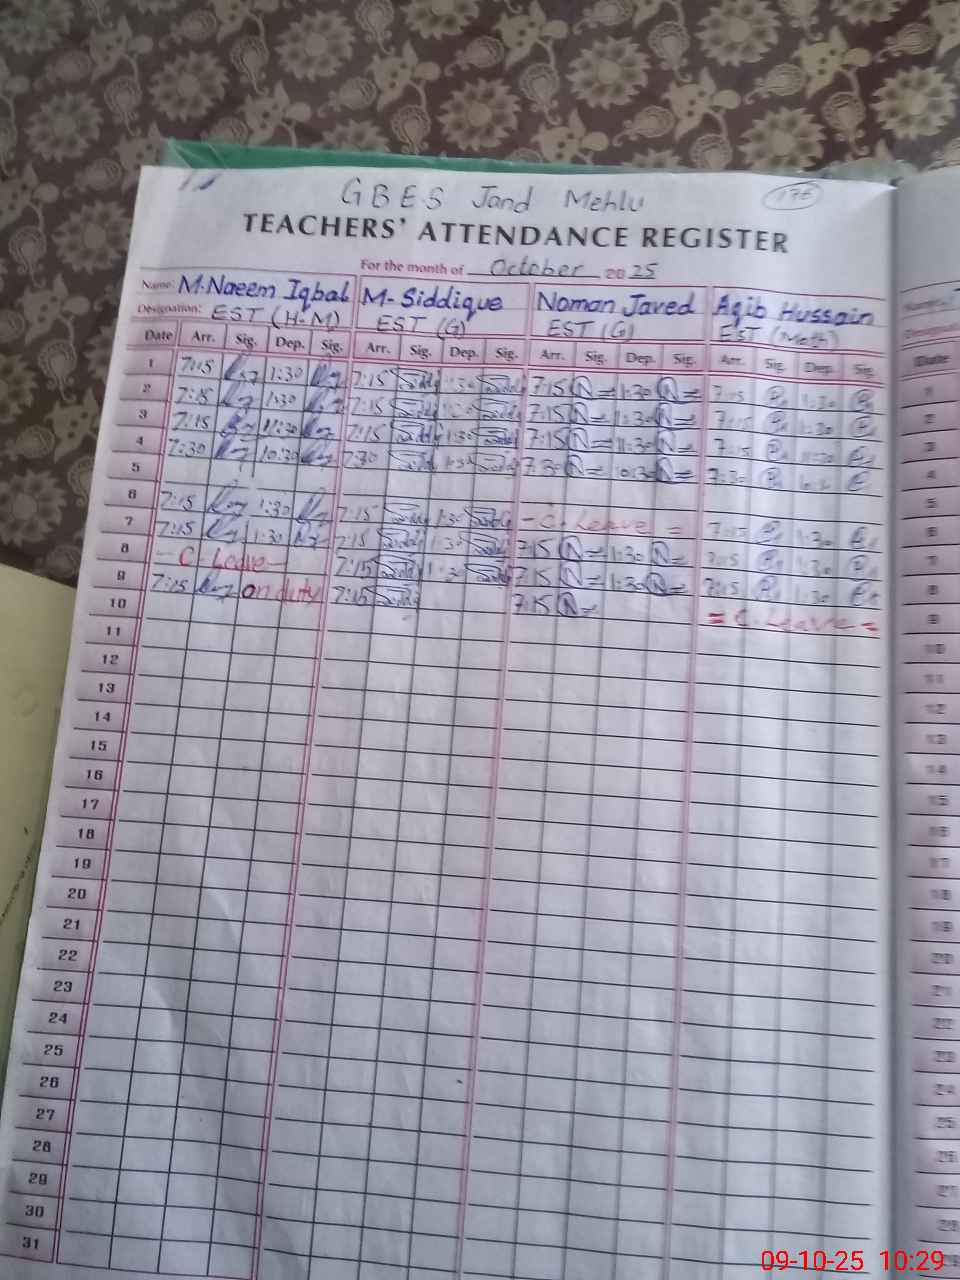 GBES Jand Mehlu
176
TEACHERS' ATTENDANCE REGISTER
For the month of October 2025
Name: M. Naeem Iqbal M- Siddique Noman Javed Aqib Hussain
Designation: EST (H-M) EST (G) EST (G) EST (Math)
Date Arr. Sig. Dep. Sig. Arr. Sig. Dep. Sig. Arr. Sig. Dep. Sig. Arr. Sig. Dep. Sig. Date
1 7:15 1:30 7:15 1:30 7:15 1:30 7:15 1:30 1
2 7:15 1:30 7:15 1:30 7:15 1:30 7:15 1:30 2
3 7:15 11:30 7:15 7:15 11:30 7:15 11:30 3
4 7:30 10:30 7:30 7:30 10:30 7:30 4
5 5
6 7:15 1:30 7:15 1:30 - C. Leave = 7:15 1:30 6
7 7:15 1:30 7:15 1:30 7:15 1:30 7:15 1:30 7
8 - C. Leave - 7:15 1:30 7:15 1:30 7:15 1:30 8
9 7:15 on duty 7:15 7:15 = C. Leave = 9
10 10
11 11
12 12
13 13
14 14
15 15
16 16
17 17
18 18
19 19
20 20
21 21
22 22
23 23
24 24
25 25
26 26
27 27
28 28
29
30
31
09-10-25 10:29